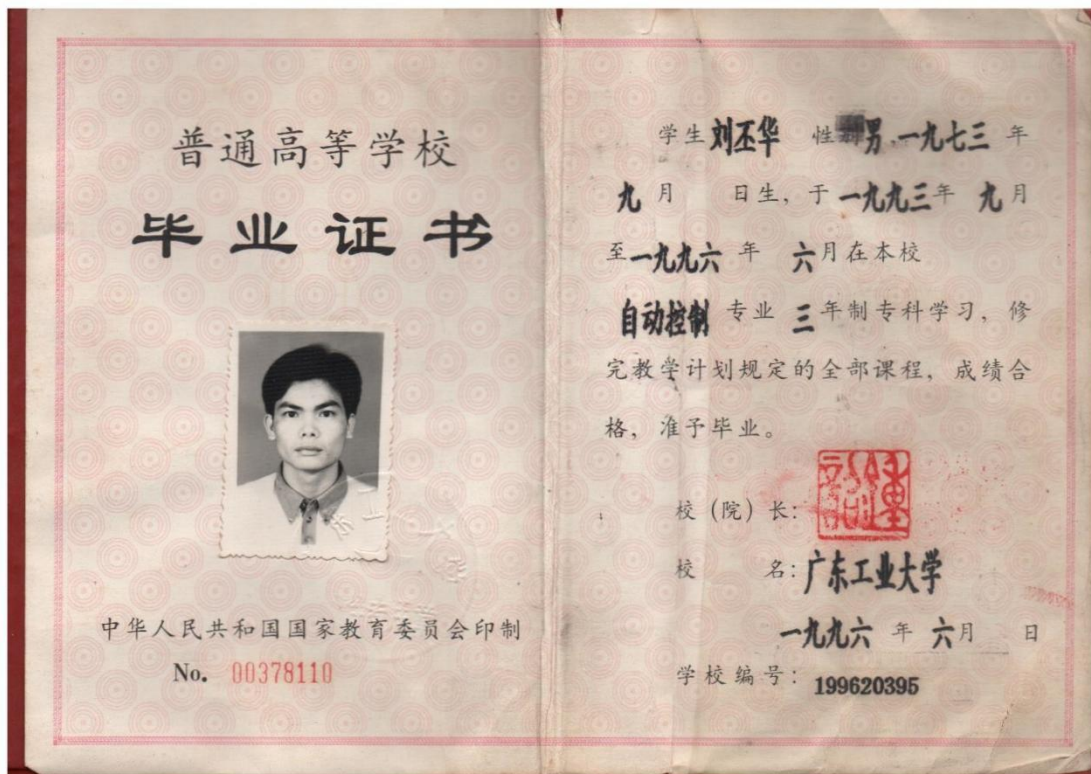 普通高等学校
毕业证书
中华人民共和国国家教育委员会印制
No. 00378110
学生刘丕华 性别男,一九七三年
九月 日生,于一九九三年 九月
至一九九六年 六月在本校
自动控制专业 三年制专科学习,修
完教学计划规定的全部课程,成绩合
格,准予毕业。
校(院)长:
校 名:广东工业大学
一九九六年 六月 日
学校编号:199620395